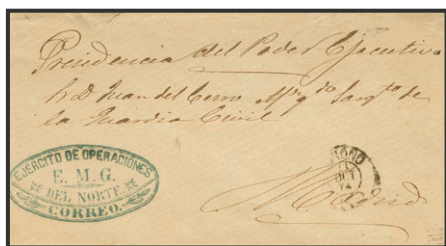 Presidencia del Poder Ejecutivo
D. Juan del Cerro Sargto de
la Guardia Civil
EJERCITO DE OPERACIONES
E. M. G.
DEL NORTE
CORREO.
Madrid